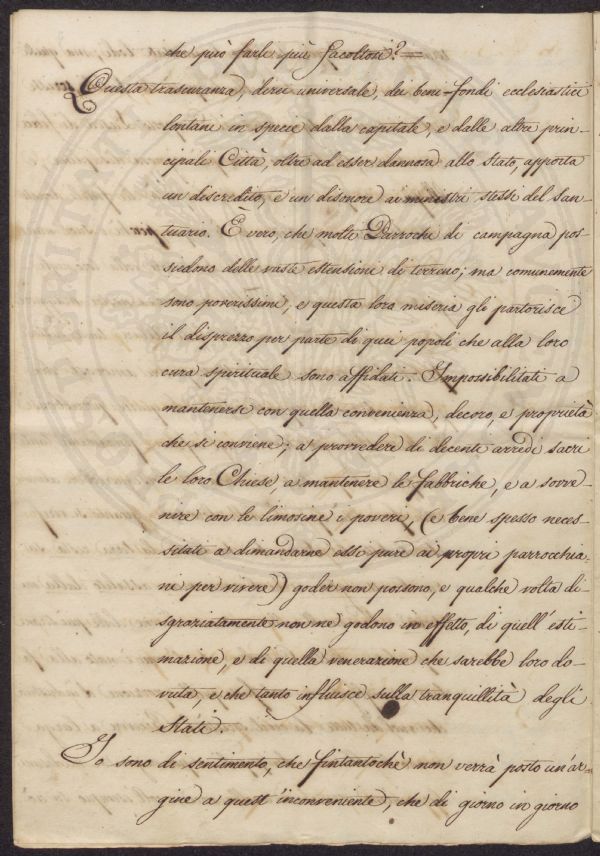 che può farle più facoltosi?=
Questa trascuranza, dirò universale, dei beni-fondi ecclesiastici
lontani in specie dalla capitale, e dalle altre prin-
cipali Città, oltre ad esser dannosa allo stato, apporta
un discredito, e un disonore ai ministri stessi del San-
tuario. È vero, che molti Parrochi di campagna pos-
siedono delle vaste estensioni di terreno; ma comunemente
sono poverissimi, e questa loro miseria gli partorisce
il disprezzo per parte di quei popoli che alla loro
cura spirituale sono affidati. Impossibilitati a
mantenersi con quella convenienza, decoro, e proprietà
che si conviene; a provvedere di decenti arredi sacri
le loro Chiese, a mantenere le fabbriche, e a sovve-
nire con le limosine i poveri, (e bene spesso neces-
sitati a dimandarne essi pure ai propri parrocchia-
ni per vivere) goder non possono, e qualche volta di-
sgraziatamente non ne godono in effetto, di quell' esti-
mazione, e di quella venerazione che sarebbe loro do-
vuta, e che tanto influisce sulla tranquillità degli
Stati.
Io sono di sentimento, che fintantochè non verrà posto un'ar-
gine a quest' inconveniente, che di giorno in giorno